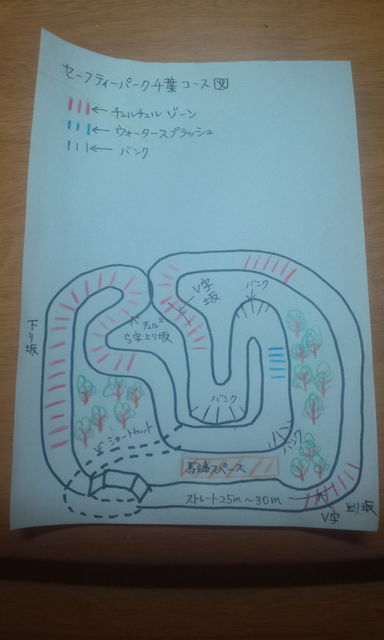 セーフティーパーク千葉コース図
チュルチュルゾーン
ウォータースプラッシュ
バンク
V字
坂
バンク
下り坂
チュルチュル
S字上り坂
バンク
ショートカット
バンク
スペース
ストレート25m〜30m
V字
上り坂